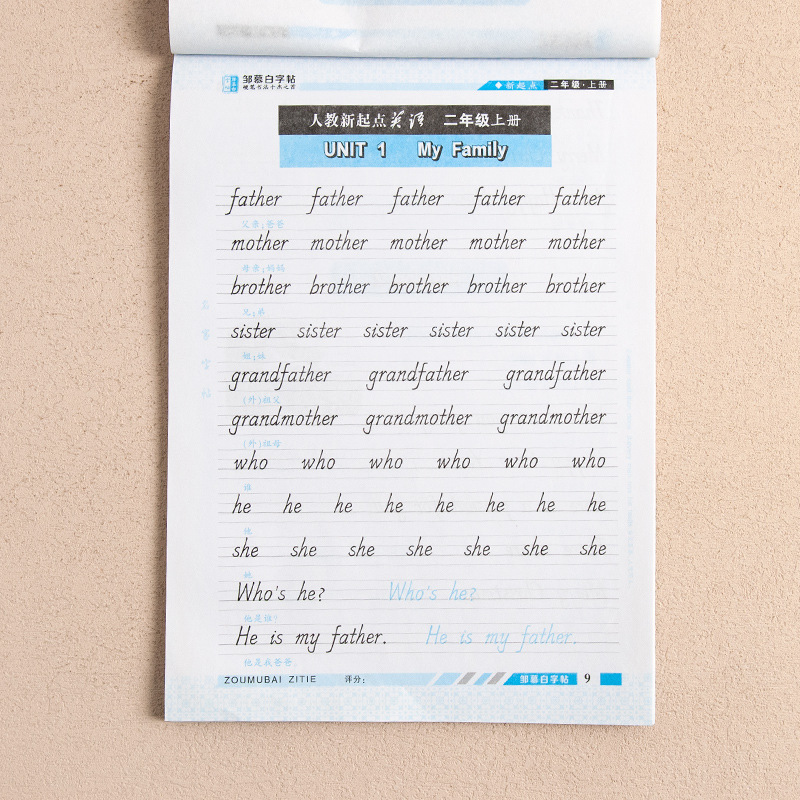 邹慕白字帖
硬笔书法十杰之首
◆ 新起点 二年级·上册
人教新起点英语 二年级上册
UNIT 1 My Family
father father father father father
父亲;爸爸
mother mother mother mother mother
母亲;妈妈
brother brother brother brother brother
兄;弟
sister sister sister sister sister sister
姐;妹
grandfather grandfather grandfather
(外)祖父
grandmother grandmother grandmother
(外)祖母
who who who who who who
谁
he he he he he he he he
他
she she she she she she she
她
Who's he? Who's he?
他是谁?
He is my father. He is my father.
他是我爸爸。
ZOUMUBAI ZITIE 评分: 邹慕白字帖 9